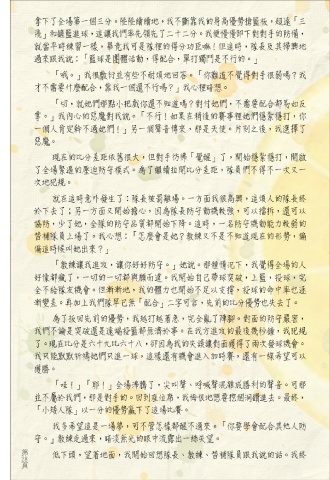 拿下了全場第一個三分。陸陸續續地，我不斷靠我的身高優勢搶籃板，超遠「三
後」和鑽籃進球，這讓我們率先領先了二十二分。我便慢慢卸下對對手的防備，
就當平時練習一樣，畢竟我可是隊裡的得分功臣嘛！但這時，隊長及其掃興地
過來跟我說：「籃球是團體活動，得配合，單打獨鬥是不行的。」
「哦。」我很敷衍並有些不耐煩地回答。「你難道不覺得對手很弱嗎？我
才不需要什麼配合，靠我一個還不行嗎？」我心裡暗想。
「切，就他們那點小把戲你還不知道嗎？對付他們，不需要配合都易如反
掌。」我內心的惡魔對我說。「不行！如果在稍後的賽事裡她們慢慢強打，你
一個人肯定鉾不過她們！」另一個聲音傳來，那是天使。片刻之後，我選擇了
惡魔。
現在的比分差距依舊很大，但對手仿彿「覺醒」了，開始慢慢強打，開啟
了全場緊逼的壓迫防守模式。為了繼續拉開比分差距，隊員們不得不一次又一
次地犯規。
就在這時意外發生了：隊長被罰離場。一方面我很高興，這煩人的隊長終
於下去了；另一方面又開始擔心，因為隊長防守動機較強，可以擋拆，還可以
協防，少了她，全隊的防守品質都開始下降。這時，一名防守機動能力較弱的
替補隊員上場了。我心想：「怎麼會是她？教練又不是不知道現在的形勢，偏
偏這時候叫她出來？」
「教練讓我進攻，讓你好好防守。」她說。那種情況下，我覺得全場的人
好像都瘋了。一切的一切都與願而違。我開始自己帶球突破、上籃、投球，完
全不給隊友機會。但漸漸地，我的體力也開始不足以支撐，投球的命中率也逐
漸變差。再加上我們隊早已無「配合」二字可言，先前的比分優勢也失去了。
為了找回先前的優勢，我越打越著急，完全亂了陣腳。對面的防守嚴密，
我們不論是突破還是遠端投籃都無濟於事。在我方進攻的最後幾秒鐘，我犯規
了。現在比分是六十九比六十八，卻因為我的失誤讓對面獲得了兩次發球機會。
我只能默默祈禱她們只進一球，這樣還有機會進入加時賽，還有一絲希望可以
獲勝。
「哇！」「耶！」全場沸騰了，尖叫聲、呼喊聲流離底勝利的聲音。可那
並不屬於我們，那是對手的。回到座位席，我悔恨地想要挖個洞鑽進去。最終，
「小矮人隊」以一分的優勢贏下了這場比賽。
我多希望這是一場夢，可不管怎樣都醒不過來。「你要學會配合其他人防
守。」教練走過來，暗淡無光的眼中流露出一絲失望。
低下頭，望着地面，我開始回想隊長、教練、替補隊員跟我說的話。我終